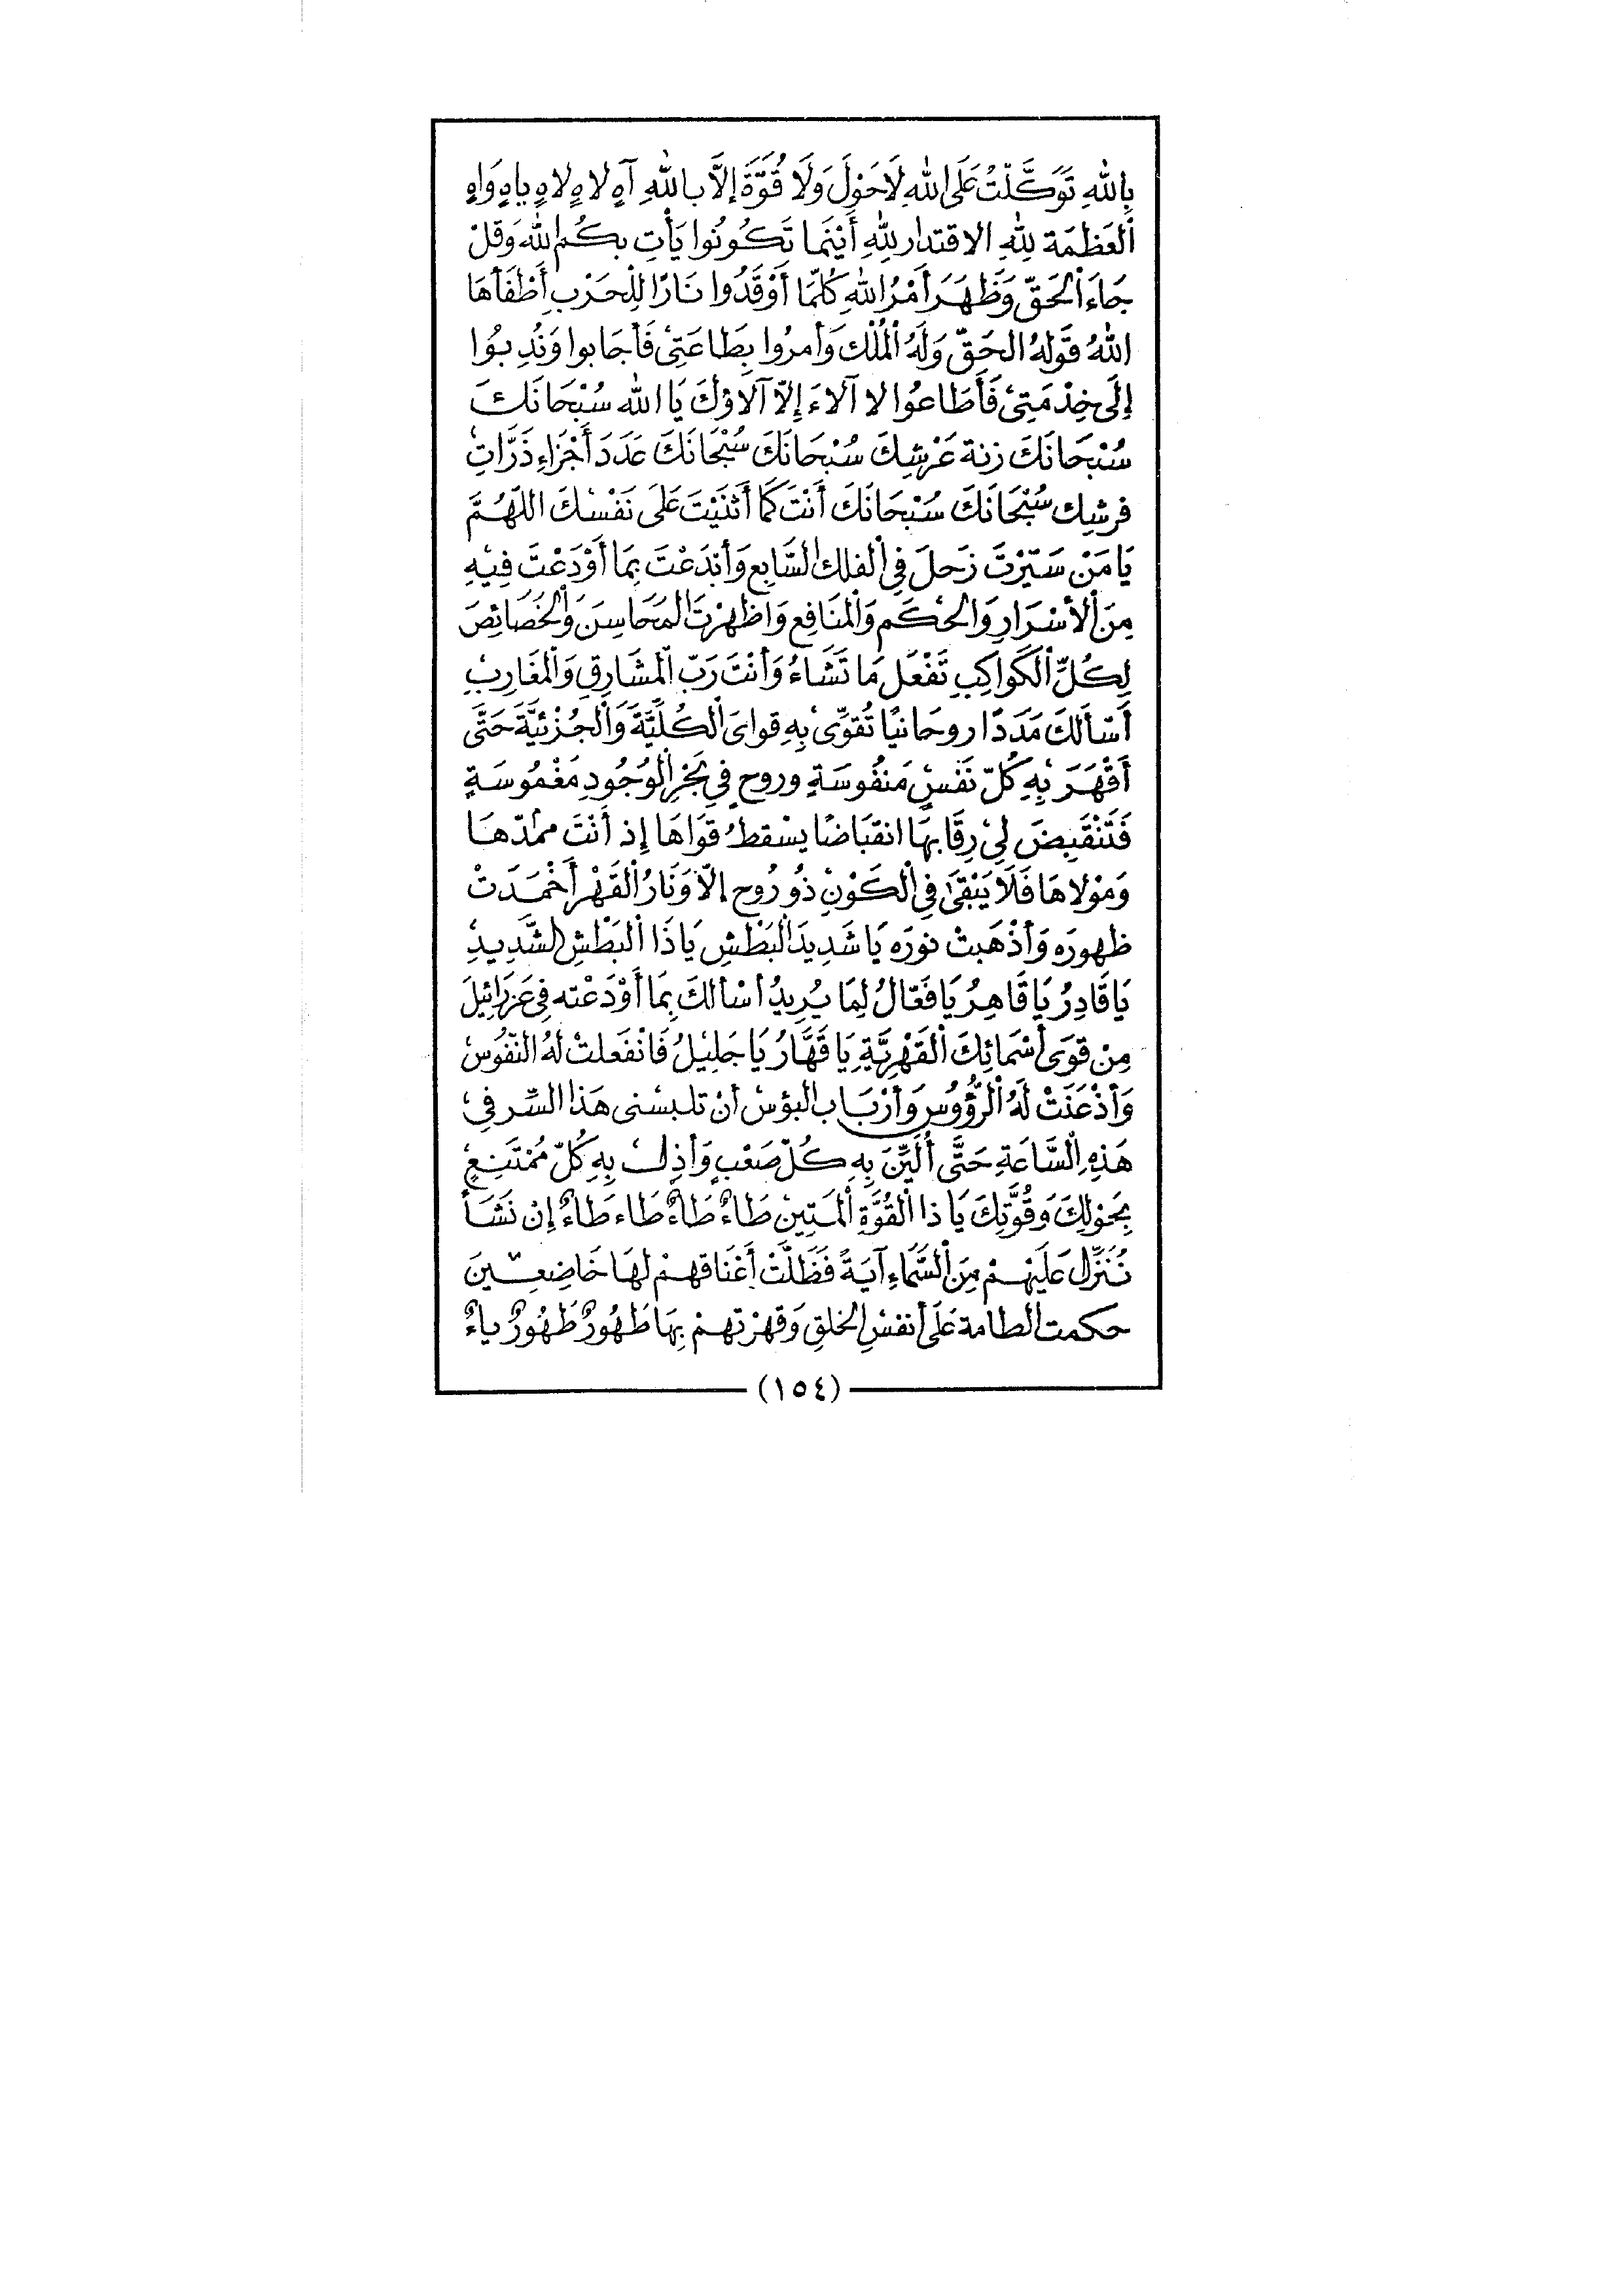 بِاللهِ تَوَكَّلْتُ عَلَى اللهِ لَا حَوْلَ وَلَا قُوَّةَ إِلَّا بِاللهِ آهٍ لاهٍ لاهٍ ياهٍ وَاهٍ
اَلْعَظَمَة لِلهِ الاقتدار لِلهِ أَيْنَمَا تَكُونُوا يَأْتِ بِكُم اللهُ وَقُلْ
جَاءَ الْحَقّ وَظَهَرَ أَمْرُ اللهِ كُلَّمَا أَوْقَدُوا نَارًا لِلْحَرْبِ أَطْفَأَهَا
اللهُ قَوْلهُ الحَقّ وَلَهُ الْمُلْك وَأمرُوا بِطَاعَتِى فَأَجَابوا وَنُدِبُوا
إِلَى خِدْمَتِى فَأَطَاعُوا لا آلاءَ إِلّا آلاؤكَ يَا الله سُبْحَانَكَ
سُبْحَانَكَ زنة عَرْشِكَ سُبْحَانَكَ سُبْحَانَكَ عَدَدَ أَجْزَاءِ ذَرَّاتِ
فرشِك سُبْحَانَكَ سُبْحَانَكَ أَنْتَ كَمَا أَثْنَيْتَ عَلَى نَفْسِكَ اللّهُمَّ
يَا مَنْ سَيَّرْتَ زحَلَ فِي الْفلك السَّابِع وَأَبْدَعْتَ بِمَا أَوْدَعْتَ فِيْهِ
مِنَ الأَسْرَارِ وَالحكَم وَالْمنَافِع وَأَظهَرْتَ المَحَاسِنَ وَالْخَصَائِصَ
لِكُلِّ الْكَوَاكِبِ تَفْعَل مَا تَشَاءُ وَأَنْتَ رَبّ الْمشَارِقِ وَالْمغَارِبِ
أَسْأَلكَ مَدَدًا روحَانيًا تُقَوِّى بِهِ قواىَ الْكُلِّيَّةَ وَالْجُزْئيَّةَ حَتَّى
أَقْهَرَ بِهِ كُلّ نَفْسٍ مَنفُوسَةٍ وروح فِي بَحْرِ الْوُجُودِ مَغْمُوسَةٍ
فَتَنْقَبِضَ لِى رِقَابهَا انقبَاضًا يسْقطُ قوَاهَا إِذ أَنْتَ ممدّهَا
وَمَوْلاهَا فَلَا يَبْقَى فِي الْكَوْنِ ذُو رُوحٍ إلاّ وَنَارُ الْقَهْر أَخْمَدَتْ
ظهورَه وَأَذْهَبَتْ نورَه يَا شَدِيدَ الْبَطْشِ يَا ذَا الْبَطْشِ الشَّدِيدِ
يَا قَادِرُ يَا قَاهِرُ يَا فَعّالُ لِمَا يُرِيدُ أسْألكَ بِمَا أَوْدَعْته فِى عَزرَائِيلَ
مِنْ قوَى أَسْمَائِكَ الْقَهْرِيَّةِ يَا قَهَّارُ يَا جَلِيْلُ فَانْفَعلتْ لَهُ النّفُوس
وَأَذْعَنَتْ لَهُ الْرُّؤُوس وَأَرْبَاب البؤس أن تلبسنى هَذا السِّر فِي
هَذِهِ الْسَّاعَةِ حَتَّى أُلَيِّنَ بِهِ كُلّ صَعْبٍ وَأذِلّ بِهِ كُلّ مُمْتَنِعٍ
بِحَوْلِكَ وَقُوَّتِكَ يَا ذا الْقُوَّةِ الْمَتِيْنِ طَاءٌ طَاءٌ طَاء طَاءٌ إِنْ نَشَأْ
نُنَزِّل عَلَيْهِمْ مِنَ السَّمَاءِ آيَةً فَظَلَّتْ أَعْنَاقهمْ لهَا خَاضِعِيْنَ
حكمت الطامة عَلَى أنفسِ الخلقِ وَقهرْتهمْ بِهَا طَهُورٌ طَهُورٌ ياءٌ
(١٥٤)